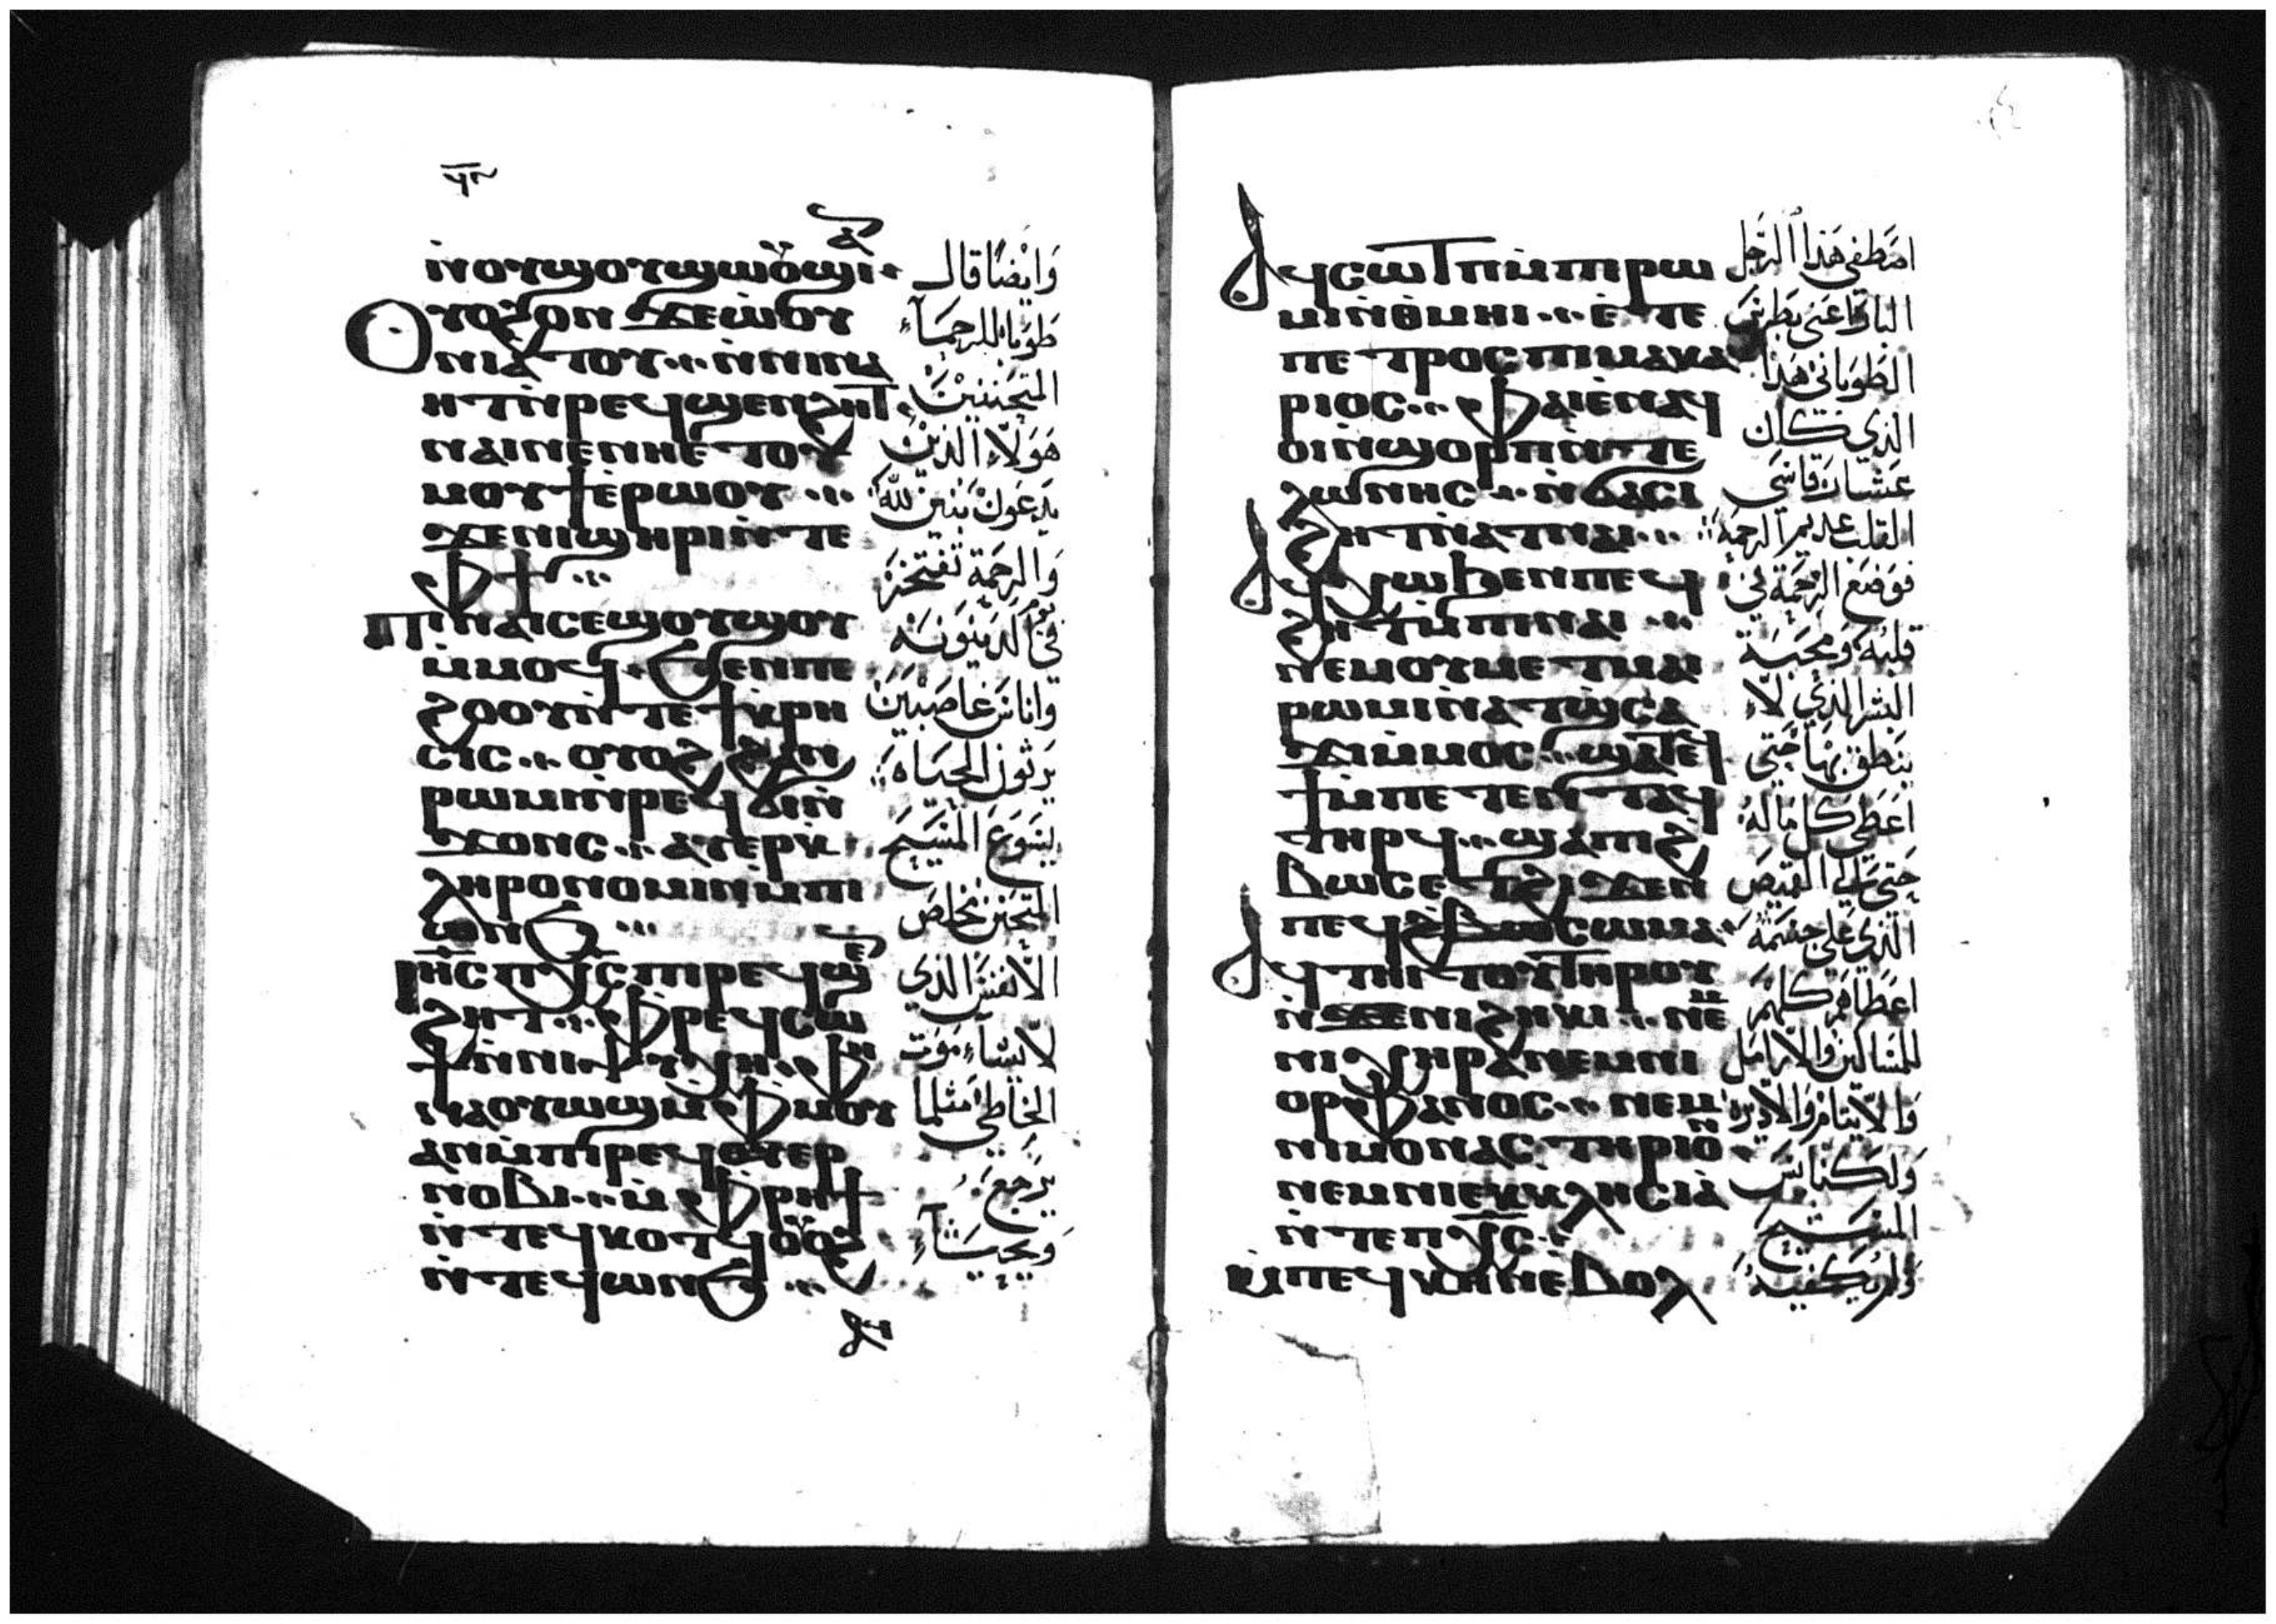 ⲛ̀ⲟⲩϣⲟⲩϣⲱⲟⲩϣⲓ
ⲟⲩⲟϩ ⲟⲛ ϫⲉ ⲱ̀ⲟⲩ
ⲛⲓⲁ̀ⲧⲟⲩ ⲛ̀ⲛⲓⲛⲁ
ⲏⲧ ⲛ̀ⲣⲉϥϣⲉⲛϩⲏⲧ
ⲛⲁⲓ ⲛⲉ ⲛⲏⲉ̀ⲧⲟⲩ
ⲙⲟⲩϯ ⲉ̀ⲣⲱⲟⲩ
ϫⲉ ⲛⲓϣⲏⲣⲓ ⲛ̀ⲧⲉ
ⲫϯ
ⲡⲓⲛⲁⲓ ⲥⲉϣⲟⲩϣⲟⲩ
ⲙ̀ⲙⲟϥ ϧⲉⲛ ⲡⲉ
ϩⲟⲟⲩ ⲛ̀ⲧⲉ ϯⲕⲣⲏ
ⲥⲓⲥ ⲟⲩⲟϩ ϩⲁⲛ
ⲣⲱⲙⲓ ⲛ̀ⲣⲉϥϭⲓⲛ̀
ϫⲟⲛⲥ ⲁⲩⲉⲣⲕ
ⲗⲏⲣⲟⲛⲟⲙⲓⲛ ⲙ̀ⲡⲓ
ⲱⲛϧ
ⲓⲏⲥ ⲡⲭⲥ ⲡⲓⲣⲉϥϣⲉⲛ
ϩⲏⲧ ⲫⲣⲉϥⲥⲱ
ϯ ⲛ̀ⲛⲓⲯⲩⲭⲏ ⲫⲏ
ⲛⲁⲟⲩⲱϣ ⲙ̀ⲫⲙⲟⲩ
ⲁⲛ ⲙ̀ⲡⲓⲣⲉϥⲟⲩⲉⲣ
ⲛⲟⲃⲓ ⲙ̀ⲫⲣⲏϯ
ⲛ̀ⲧⲉϥⲕⲟⲧϥ ⲟⲩⲟϩ
ⲛ̀ⲧⲉϥⲱⲛϧ
وايضًا قال
طوبا للرحمآء
المتحننين
هولآء الذين
يدعون بنين لله
والرحمة تفتخر
في يوم الدينونه
واناس غاصبين
يرثون الحياه
يسوع المسيح
المتحنن مخلص
الانفس الذي
لا يشآء موت
الخاطي مثلما
يرجع
ويحيا
ⲁϥⲥⲱⲧⲡ ⲙ̀ⲡⲓⲣⲱ
ⲙⲓ ⲛ̀ⲑⲙⲏⲓ ⲉ̀ⲧⲉ
ⲡⲉⲧⲣⲟⲥ ⲡⲓⲙⲁⲕⲁ
ⲣⲓⲟⲥ ⲫⲁⲓ ⲉ̀ⲛⲁϥ
ⲟⲓ ⲛ̀ϣⲟⲣⲡ ⲛ̀ⲧⲉ
ⲗⲱⲛⲏⲥ ⲛ̀ϭⲁⲥⲓ
ϩⲏⲧ ⲛ̀ⲁⲧⲛⲁⲓ
ⲁϥⲭⲱ ϧⲉⲛ ⲡⲉϥ
ϩⲏⲧ ⲙ̀ⲡⲓⲛⲁⲓ
ⲛⲉⲙ ⲟⲩⲙⲉⲧⲙⲁⲓ
ⲣⲱⲙⲓ ⲛ̀ⲁⲧϣⲥⲁ
ϫⲓ ⲙ̀ⲙⲟⲥ ϣⲁⲧⲉϥ
ϯ ⲙ̀ⲡⲉⲧⲉⲛⲧⲁϥ
ⲧⲏⲣϥ ϣⲁ ⲡⲓϩ
ⲃⲱⲥ ⲉⲧϩⲓϫⲉⲛ
ⲡⲉϥⲥⲱⲙⲁ
ⲁϥⲧⲏⲓⲧⲟⲩ ⲧⲏⲣⲟⲩ
ⲛ̀ϫⲉ ⲛⲓϩⲏⲕⲓ ⲛⲉⲙ
ⲛⲓⲭⲏⲣⲁ ⲛⲉⲙ ⲛⲓ
ⲟⲣⲫⲁⲛⲟⲥ ⲛⲉⲙ
ⲛⲓⲙⲟⲛⲁⲥⲧⲏⲣⲓⲟⲛ
ⲛⲉⲙ ⲛⲓⲉⲕⲕⲗⲏⲥⲓⲁ
ⲛ̀ⲧⲉ ⲡⲭⲥ
ⲙ̀ⲡⲉϥⲕⲏⲛ ⲉ̀ⲃⲟⲗ
اصطفى هذا الرجل
البار اعني بطرس
الطوباني هذا
الذي كان
عشار قاسي
القلب عديم الرحمه
فوضع الرحمة في
قلبه ومحبة
البشر الذي لا
ينطق بها حتى
اعطى كل ماله
حتى القميص
الذي على جسمه
اعطاهم كلهم
للمساكين والارامل
والايتام والاديره
ولكنائس
المسيح
ولم يكفيه